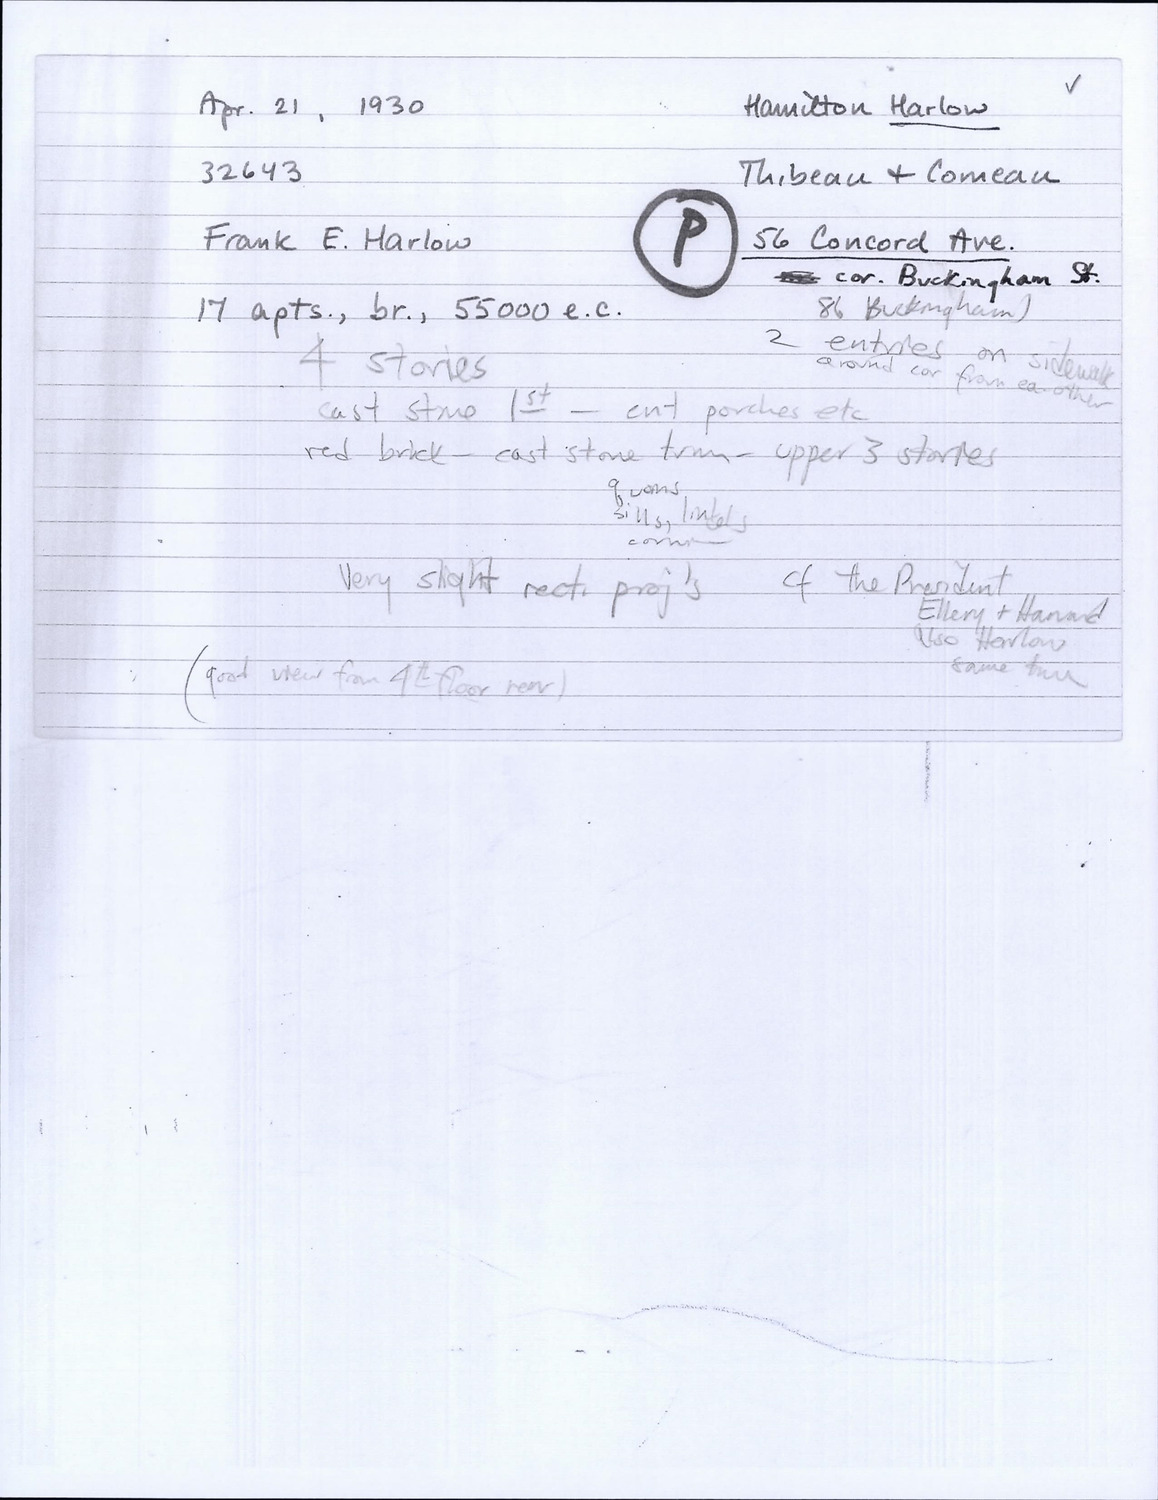 Apr. 21, 1930
32643
Frank E. Harlow
17 apts., br., 55000 e.c.
✓
Hamilton Harlow
Thibeau + Comeau
P
56 Concord Ave.
cor. Buckingham St.
86 Buckingham)
2 entries on sidewalk
around cor from ea other
4 stories
cast stone 1st — ent porches etc
red brick — cast stone trim — upper 3 stories
quoins
sills, lintels
corni
Very slight rect. proj's
cf the President
Ellery + Harvard
Also Harlow
same
(good view from 4th floor rear)